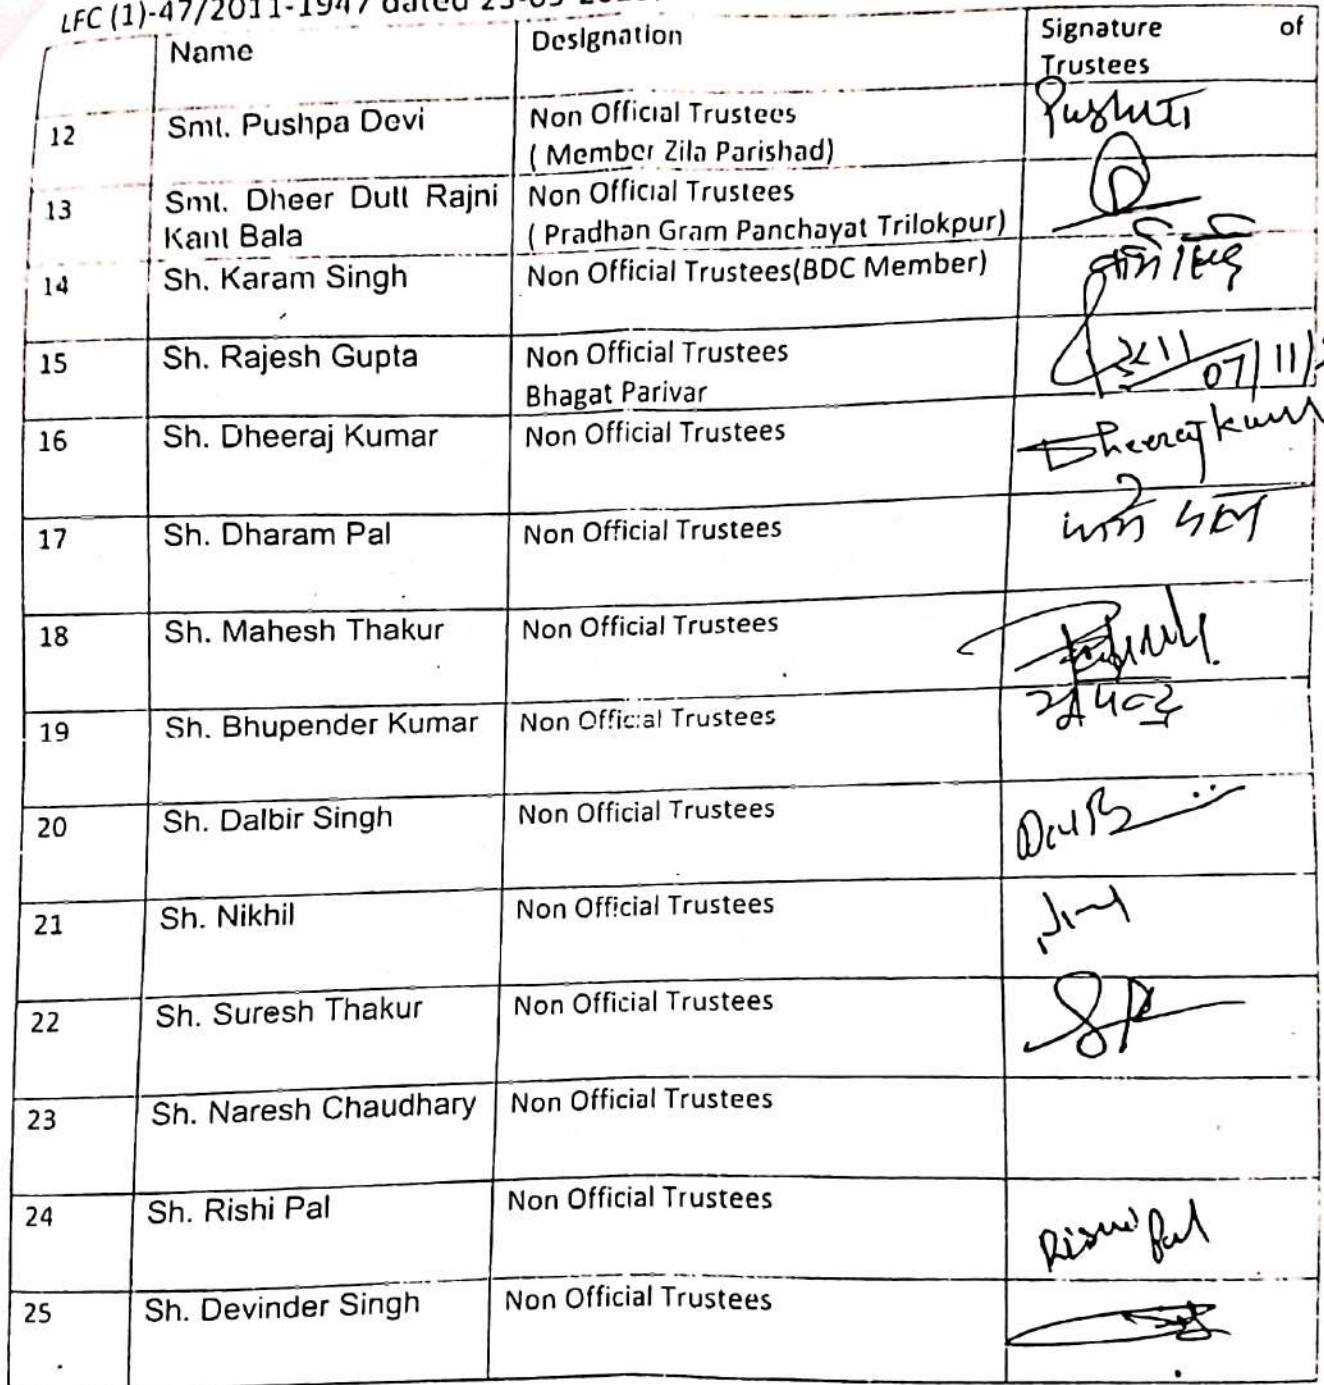 LFC (1)-47/2011-1947 dated
Name Designation Signature of
Trustees
12 Smt. Pushpa Devi Non Official Trustees
( Member Zila Parishad)
13 Smt. Dheer Dutt Rajni Non Official Trustees
Kant Bala ( Pradhan Gram Panchayat Trilokpur)
14 Sh. Karam Singh Non Official Trustees(BDC Member)
15 Sh. Rajesh Gupta Non Official Trustees 07/11/
Bhagat Parivar
16 Sh. Dheeraj Kumar Non Official Trustees Dheeraj Kumar
17 Sh. Dharam Pal Non Official Trustees धर्म पाल
18 Sh. Mahesh Thakur Non Official Trustees
19 Sh. Bhupender Kumar Non Official Trustees
20 Sh. Dalbir Singh Non Official Trustees
21 Sh. Nikhil Non Official Trustees
22 Sh. Suresh Thakur Non Official Trustees
23 Sh. Naresh Chaudhary Non Official Trustees
24 Sh. Rishi Pal Non Official Trustees Rishi Pal
25 Sh. Devinder Singh Non Official Trustees